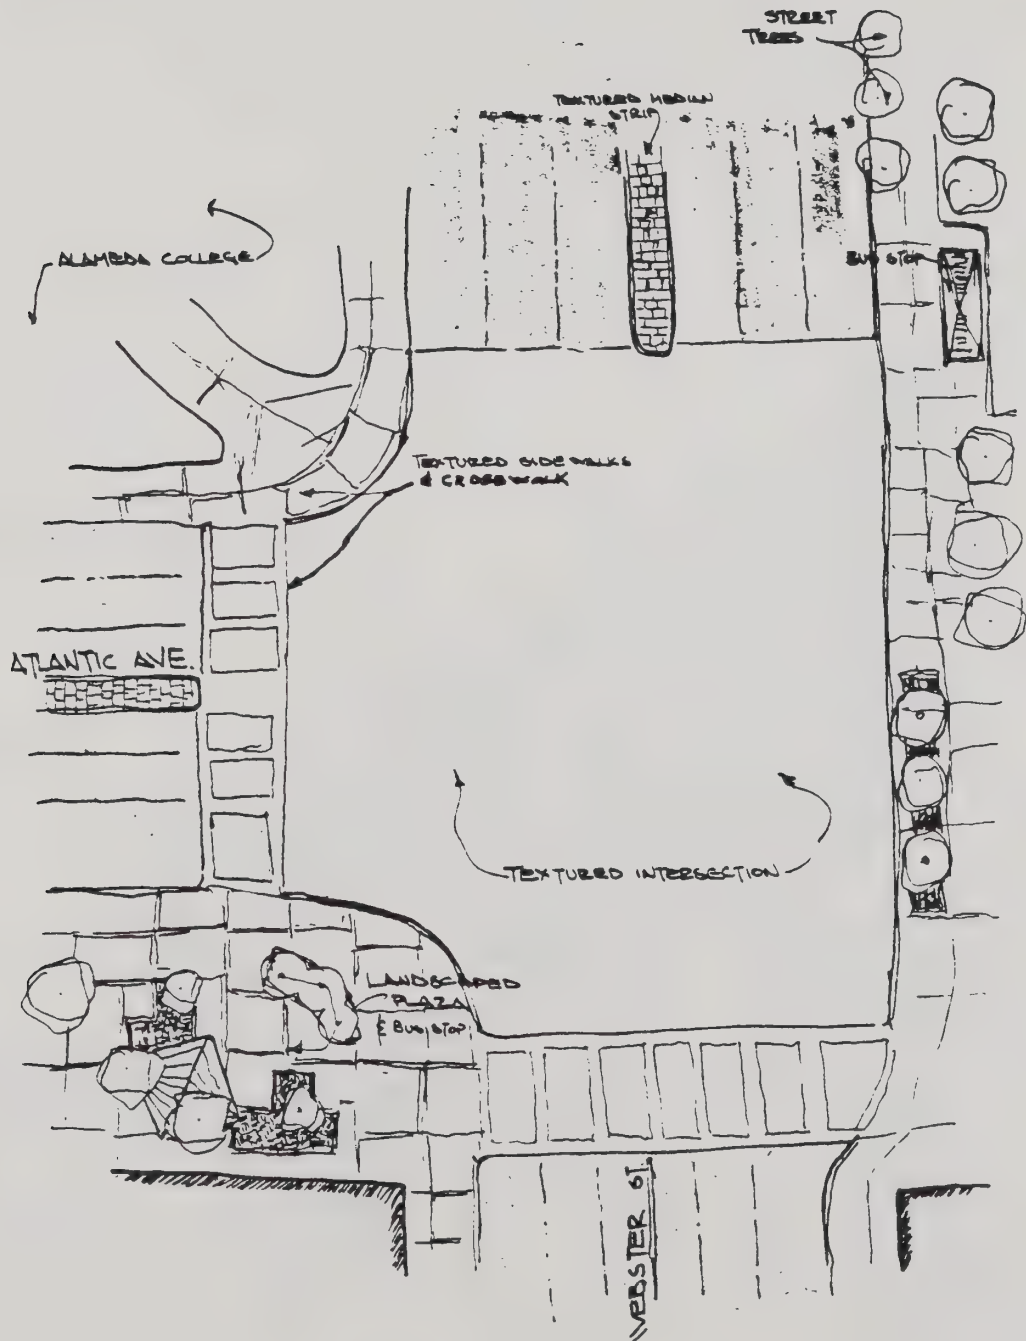 STREET
TREES
TEXTURED MEDIAN
STRIP
ALAMEDA COLLEGE
BUS STOP
TEXTURED SIDEWALKS
& CROSSWALK
ATLANTIC AVE.
TEXTURED INTERSECTION
LANDSCAPED
PLAZA
& BUS STOP
WEBSTER ST.